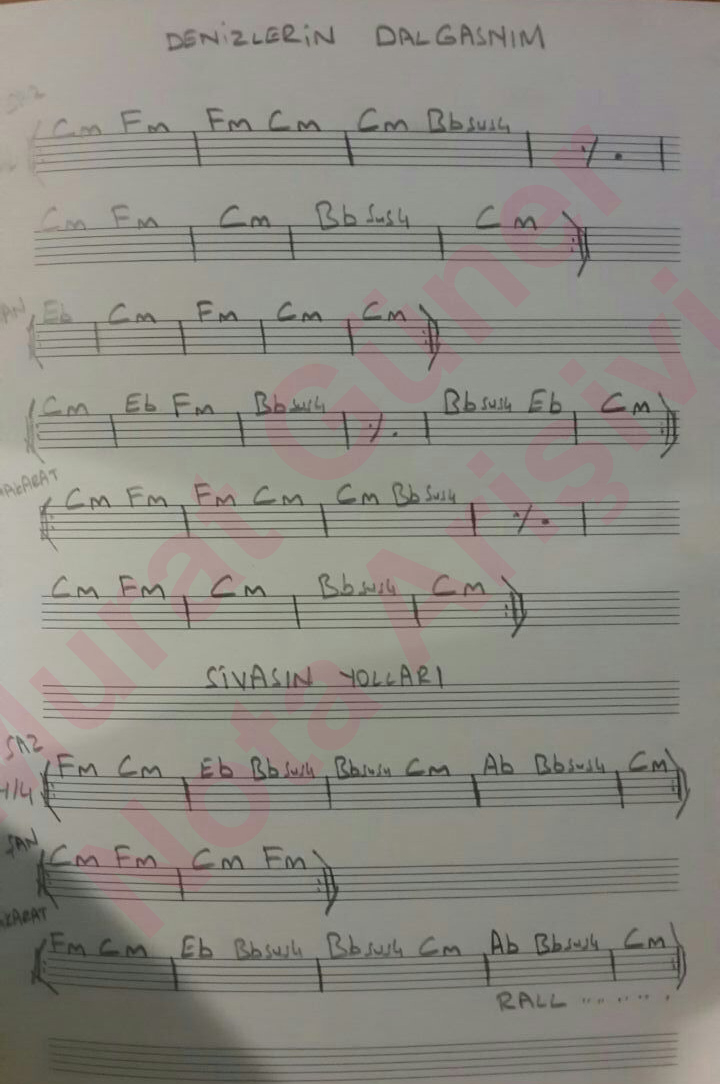 DENİZLERİN DALGASNIM
SAZ
Cm Fm Fm Cm Cm Bbsus4 ٪
Cm Fm Cm Bbsus4 Cm
ŞAN
Eb Cm Fm Cm Cm
Cm Eb Fm Bbsus4 ٪ Bbsus4 Eb Cm
NAKARAT
Cm Fm Fm Cm Cm Bbsus4 ٪
Cm Fm Cm Bbsus4 Cm
SİVASIN YOLLARI
SAZ
Fm Cm Eb Bbsus4 Bbsus4 Cm Ab Bbsus4 Cm
4/4
ŞAN
Cm Fm Cm Fm
NAKARAT
Fm Cm Eb Bbsus4 Bbsus4 Cm Ab Bbsus4 Cm
RALL ........
Murat Güner
Nota Arişivi